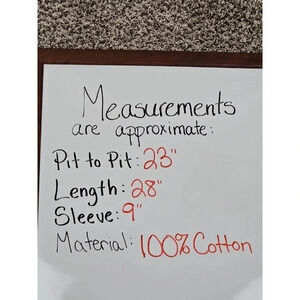 Measurements
are approximate:
Pit to Pit: 23"
Length: 28"
Sleeve: 9"
Material: 100% Cotton